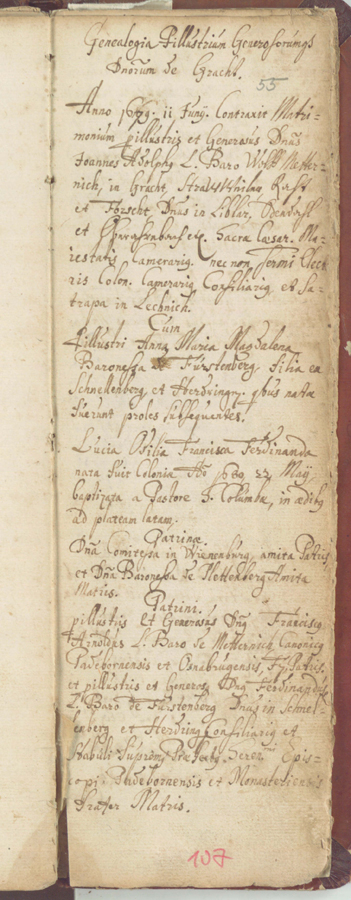 Genealogia Pillustrium Generosorumqs
Dnorum de Gracht.
55
Anno 1679. ii Juny. Contraxit Matri=
monium pillustris et Generosus Dnus
Joannes Adolphq L. Baro Wolff Metter=
nich, in Gracht, Rath
et Forscht, Dnus in Liblar,
et etc. Sacra Cæsar. Ma=
iestatis Camerariq. nec non Sermi Elect
ris Colon. Camerariq Consiliariq et Sa=
trapa in Lechnich.
Cum
Pillustri Anna Maria Magdalena
Baronessa de Fürstenberg filia ex
Schnellenberg et Herdringen. qbus natæ
fuerunt proles subsequentes.
Lucia Odilia Francisca Ferdinanda
nata fuit Coloniæ Ao 1680 22 Maÿ
baptizata a Pastore S. Columbæ, in ædibq
ad plateam latam.
Patrinæ.
Dna Comitessa in amita Patris,
et Dna Baronessa de Plettenberg Amita
Matris.
Patrini.
pillustris et Generosus Dnq Franciscq
Arnoldus L. Baro de Metternich Canonicq
Padebornensis et Osnabrugensis, Patris,
et pillustris et Generosq Dnq Ferdinandq
L. Baro de Fürstenberg Dnus in Schnel=
lenberg et Herdring Consiliariq et
Stabuli Suprem9 Præfectq Seren Epis=
copi Padebornensis et Monasteriensis
Frater Matris.
107